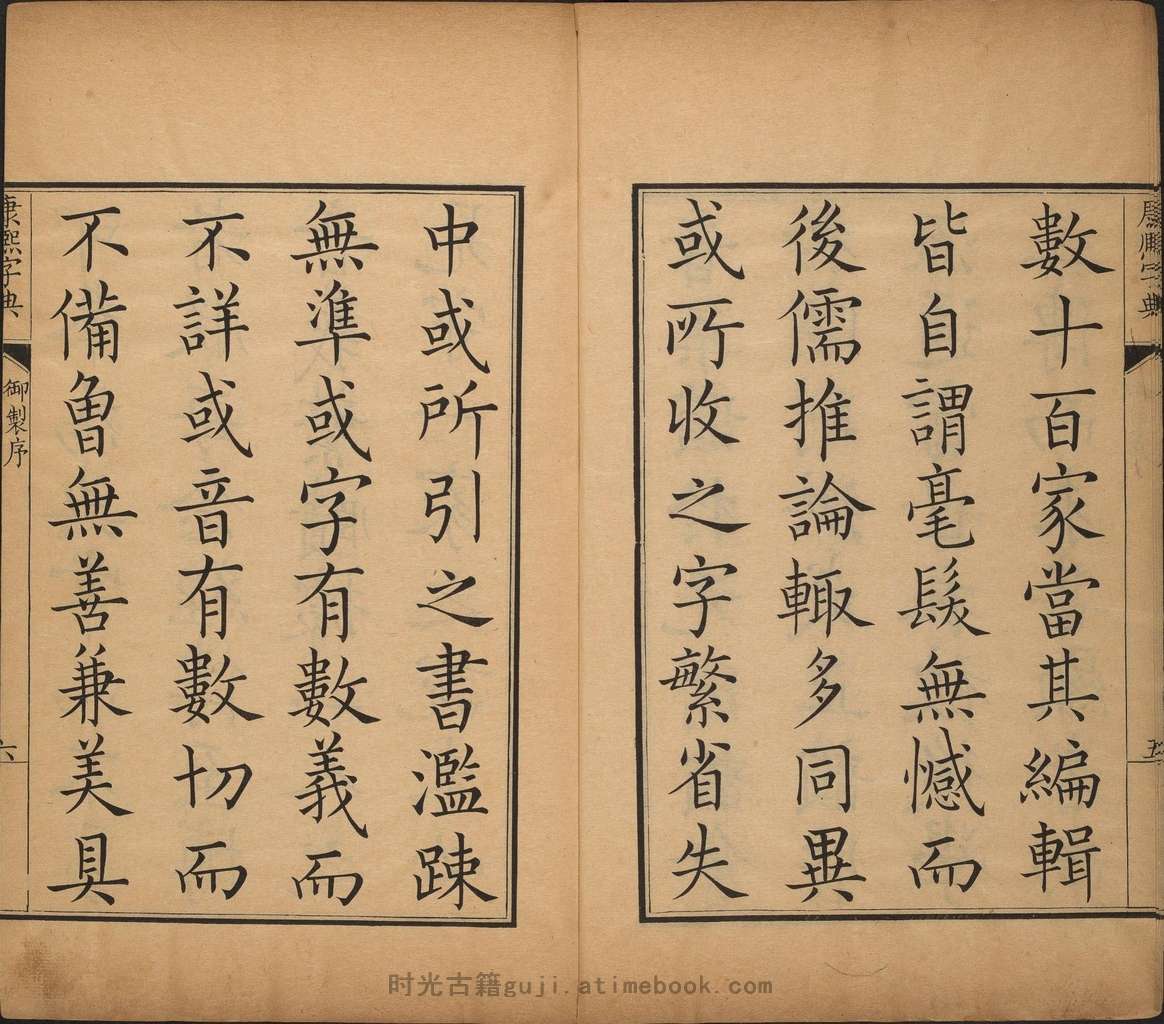 康熙字典
五
數十百家當其編輯
皆自謂毫髮無憾而
後儒推論輙多同異
或所收之字繁省失
中或所引之書濫疎
無準或字有數義而
不詳或音有數切而
不備曾無善兼美具
康熙字典
御製序
六
时光古籍guji.atimebook.com